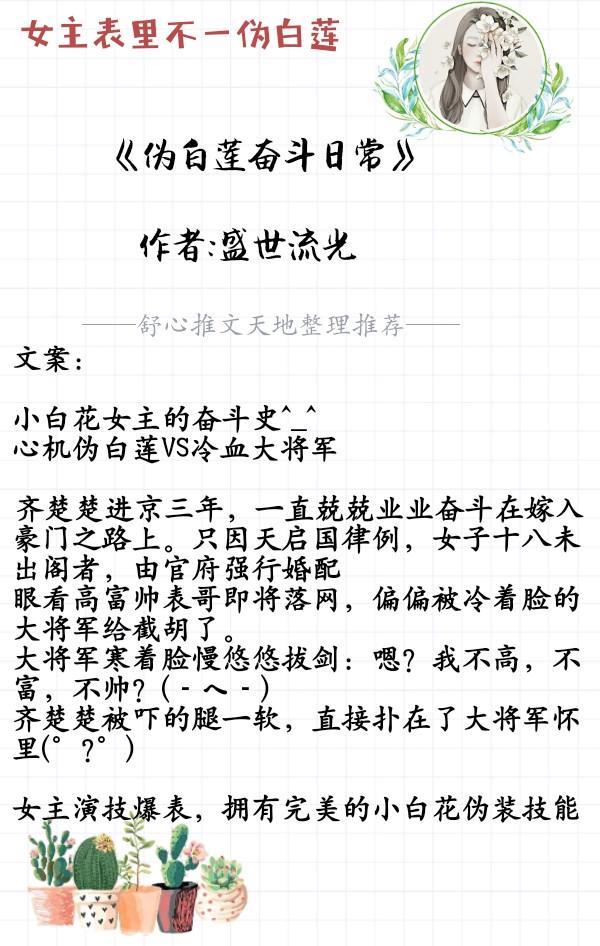 女主表里不一伪白莲
《伪白莲奋斗日常》
作者:盛世流光
——舒心推文天地整理推荐——
文案：
小白花女主的奋斗史^_^
心机伪白莲VS冷血大将军
齐楚楚进京三年，一直兢兢业业奋斗在嫁入
豪门之路上。只因天启国律例，女子十八未
出阁者，由官府强行婚配
眼看高富帅表哥即将落网，偏偏被冷着脸的
大将军给截胡了。
大将军寒着脸慢悠悠拔剑：嗯？我不高，不
富，不帅？(－へ－)
齐楚楚被吓的腿一软，直接扑在了大将军怀
里(°?°)
女主演技爆表，拥有完美的小白花伪装技能